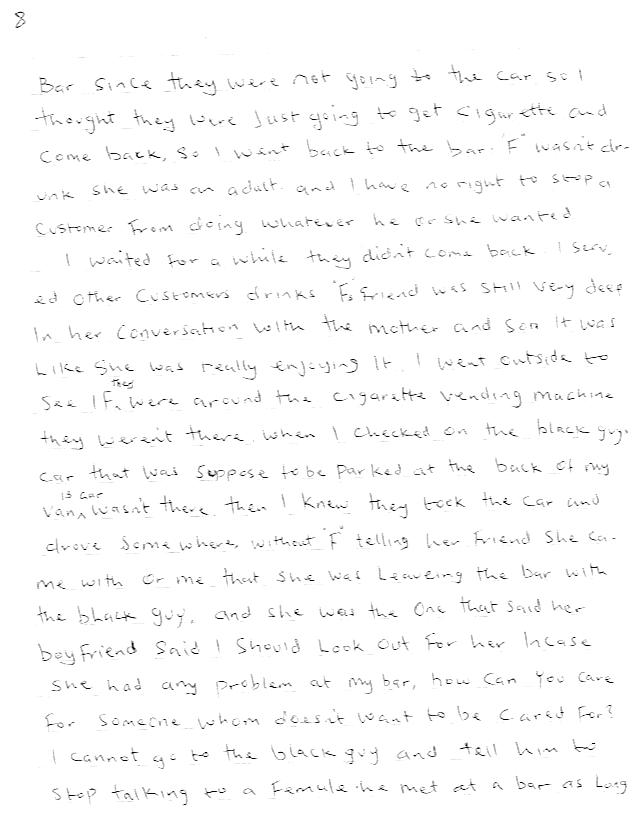 8
Bar since they were not going to the car so I
thought they were Just going to get cigarette and
come back, so I went back to the bar. "F" wasn't dr-
unk she was an adult. and I have no right to stop a
Customer From doing whatever he or she wanted
I waited for a while they didn't come back. I serv,
ed other Customers drinks "F's Friend was still very deep
In her Conversation with the mother and Son It was
Like She was really enjoying it. I went outside to
They
See IF ^ were around the cigarette vending machine
they weren't there. when I checked on the black guy,
Car that was Suppose to be parked at the back of my
is car
Van ^ wasn't there. then I Knew they took the Car and
drove Somewhere, without "F" telling her Friend She ca-
me with or me that She was Leaveing the bar with
the bhack guy, and she was the One that said her
boyfriend Said I Should Look out For her Incase
she had any problem at my bar, how Can You Care
For Someone whom doesn't want to be Cared For?
I cannot go to the black guy and tell him to
Stop talking to a Female he met at a bar as Long